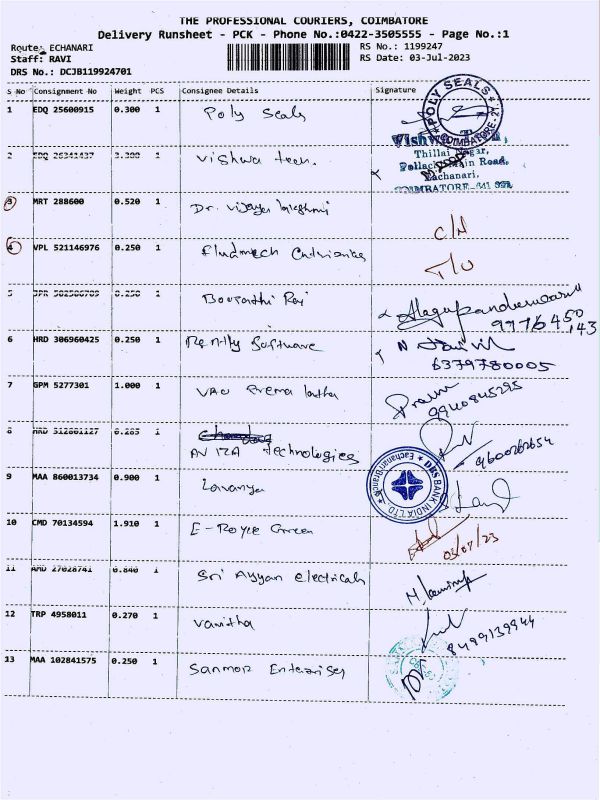 THE PROFESSIONAL COURIERS, COIMBATORE
Delivery Runsheet - PCK - Phone No.:0422-3505555 - Page No.:1
Route: ECHANARI RS No.: 1199247
Staff: RAVI RS Date: 03-Jul-2023
DRS No.: DCJB119924701
S No Consignment No Weight PCS Consignee Details Signature
1 EDQ 25600915 0.300 1 Poly Seals
POLY SEALS
COIMBATORE-21
2 EDQ 26341437 3.300 1 Vishwa teen.
Thillai Nagar,
Pollachi Main Road,
Eachanari,
COIMBATORE-641
3 MRT 288600 0.520 1 Dr. Vijaya
C/N
4 VPL 521146976 0.250 1
T/O
5 0.250 1
99764 50
143
6 HRD 306960425 0.250 1 Software
6379780005
7 GPM 5277301 1.000 1 VAO Prema latha
Pram
9940845295
8 HRD 312601127 6.285 1
AVIZA Technologies
9600262654
9 MAA 860013734 0.900 1 Lavanya
DBS BANK INDIA LTD
Eachanari Branch
10 CMD 70134594 1.910 1 E-Royce Green
03/07/23
11 AMD 27028741 0.840 1 Sri Ayyan electricals
12 TRP 4958011 0.270 1 Vanitha
8499139944
13 MAA 102841575 0.250 1 Sanmor Enterprises